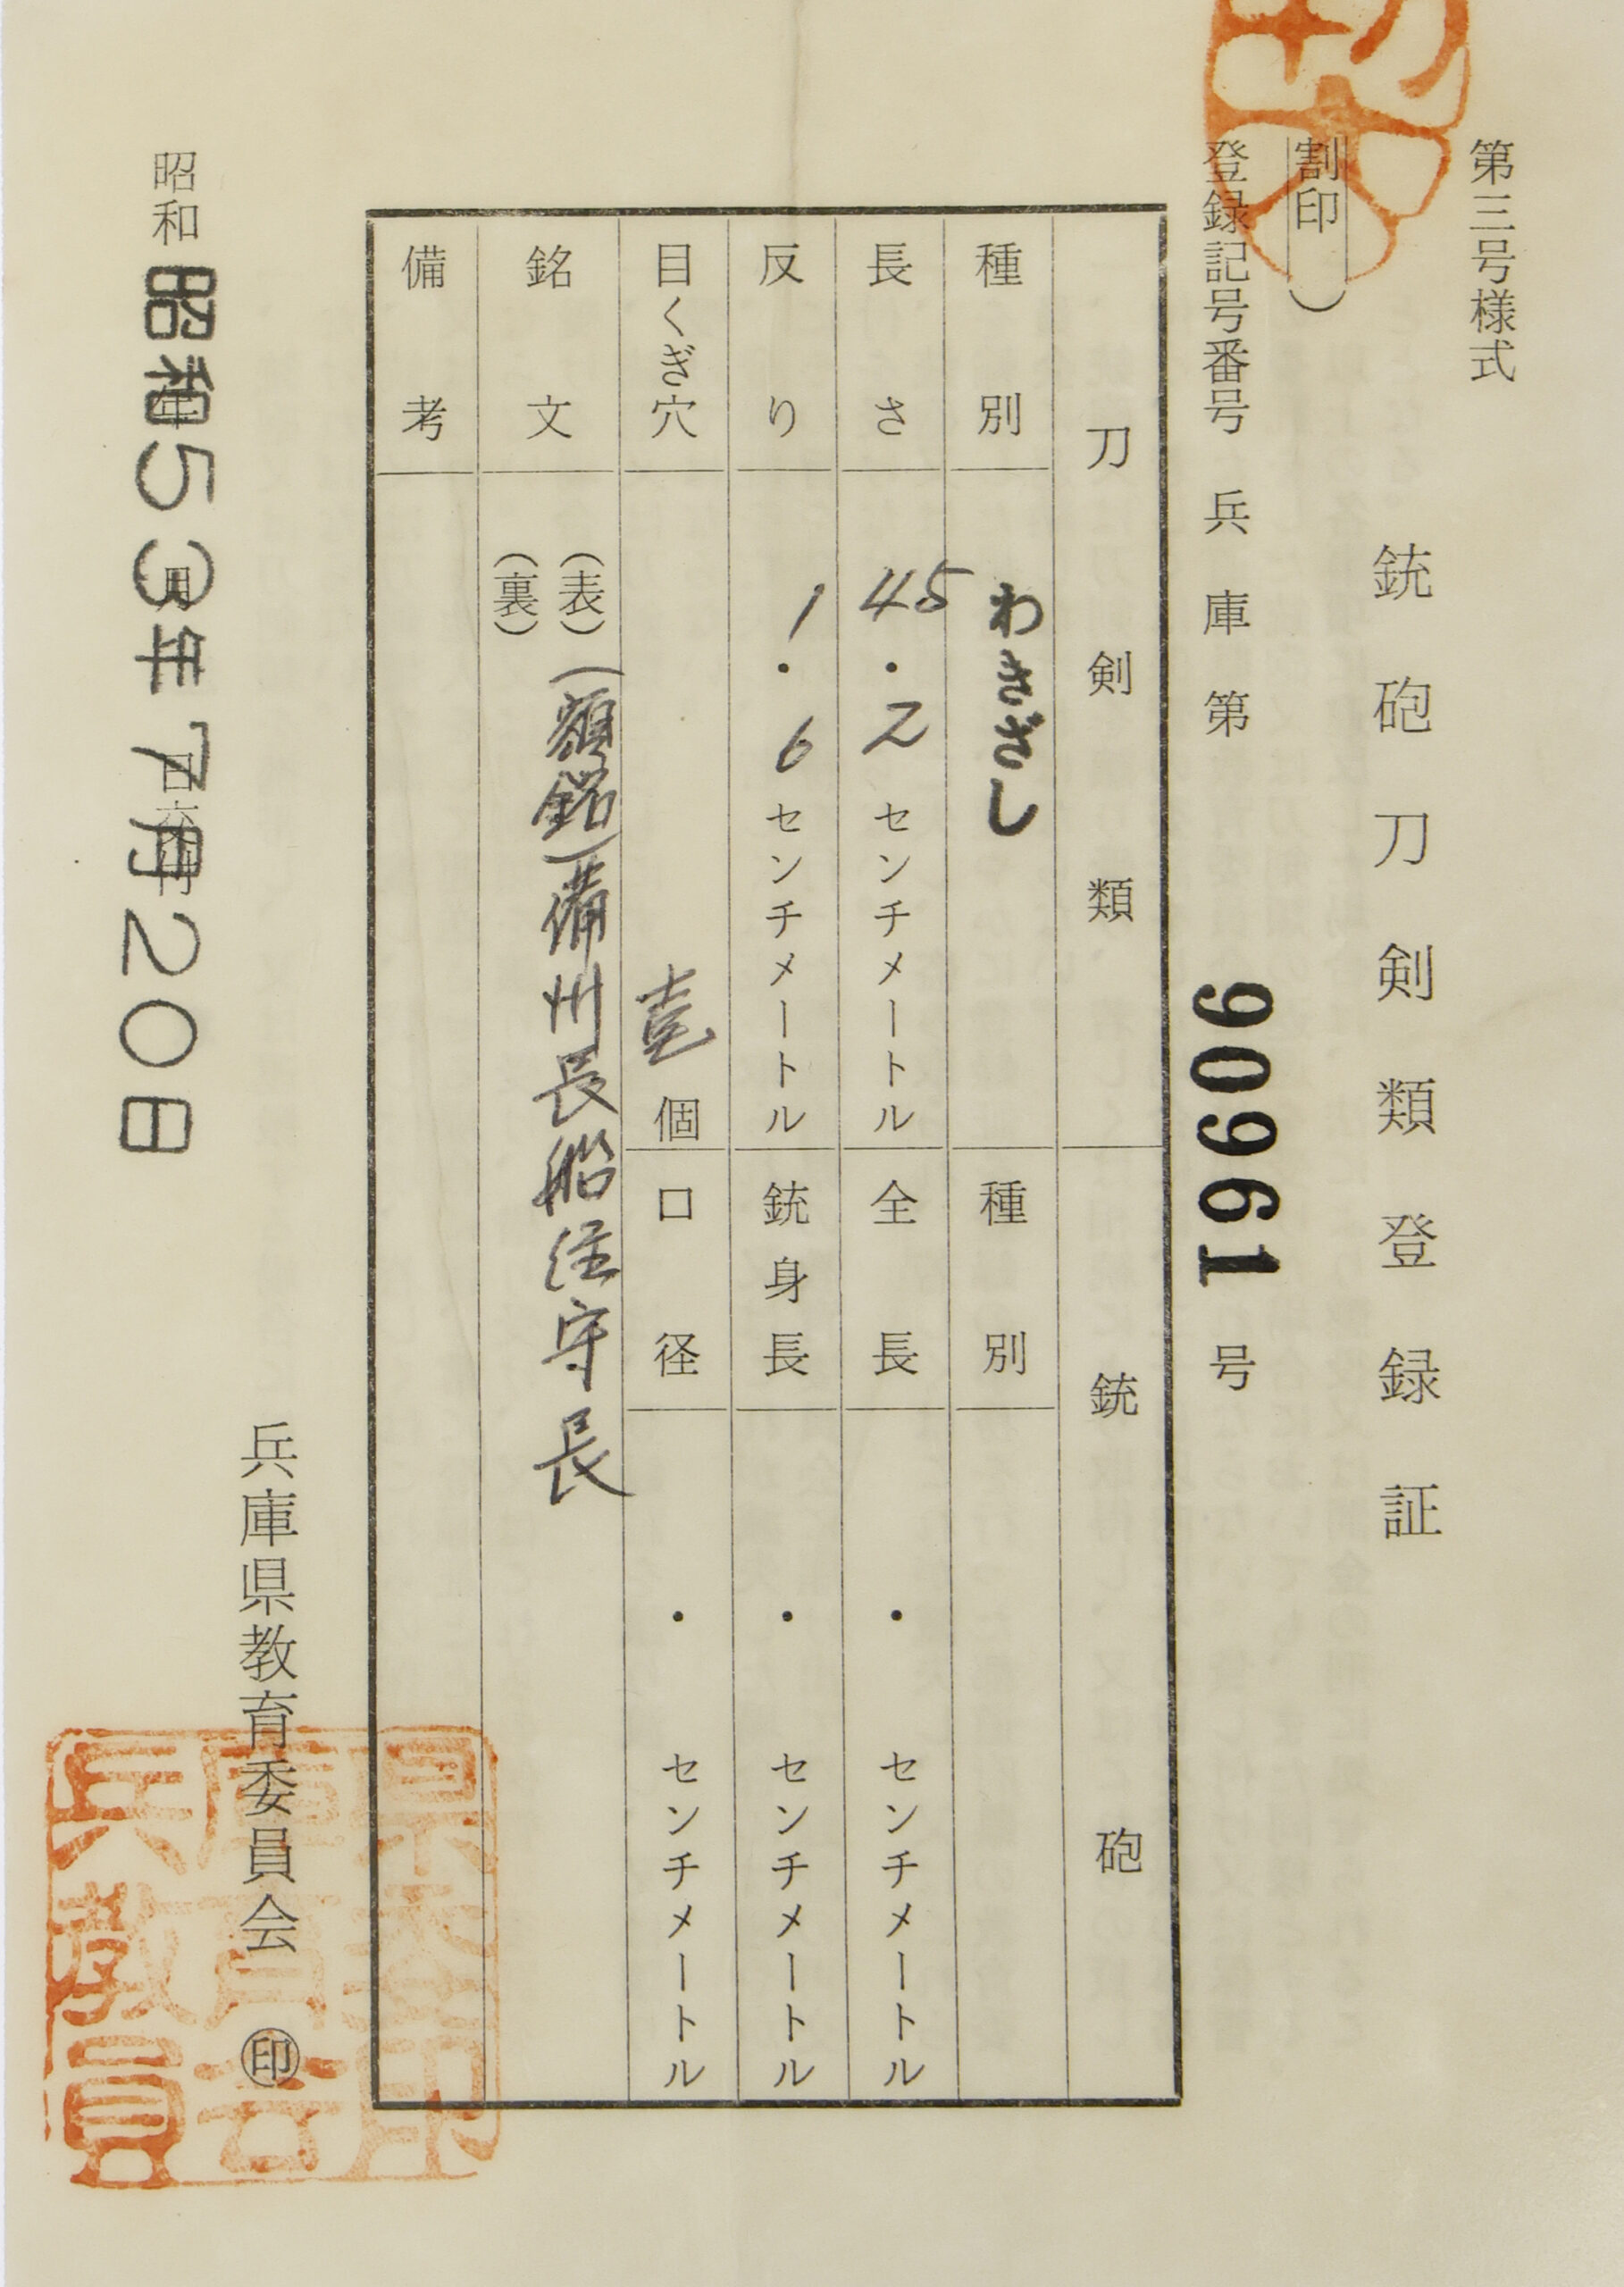 第三号様式
銃砲刀剣類登録証
割印）
登録記号番号 兵庫第 90961 号
刀剣類 銃砲
種別 わきざし 種別
長さ 45.2 センチメートル 全長 ・ センチメートル
反り 1.6 センチメートル 銃身長 ・ センチメートル
目くぎ穴 壱 個 口径 ・ センチメートル
銘文 （表）（額銘）備州長船住守長
（裏）
備考
兵庫県教育委員会 ㊞
昭和 昭和53年7月20日
兵庫県教育委員会印